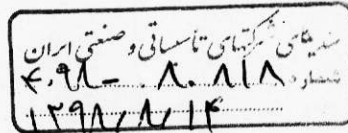 سندیکای شرکتهای تأسیساتی و صنعتی ایران
شماره ۴۰۹۸ – ۸۰۸۱۸
۱۳۹۸/۸/۱۴